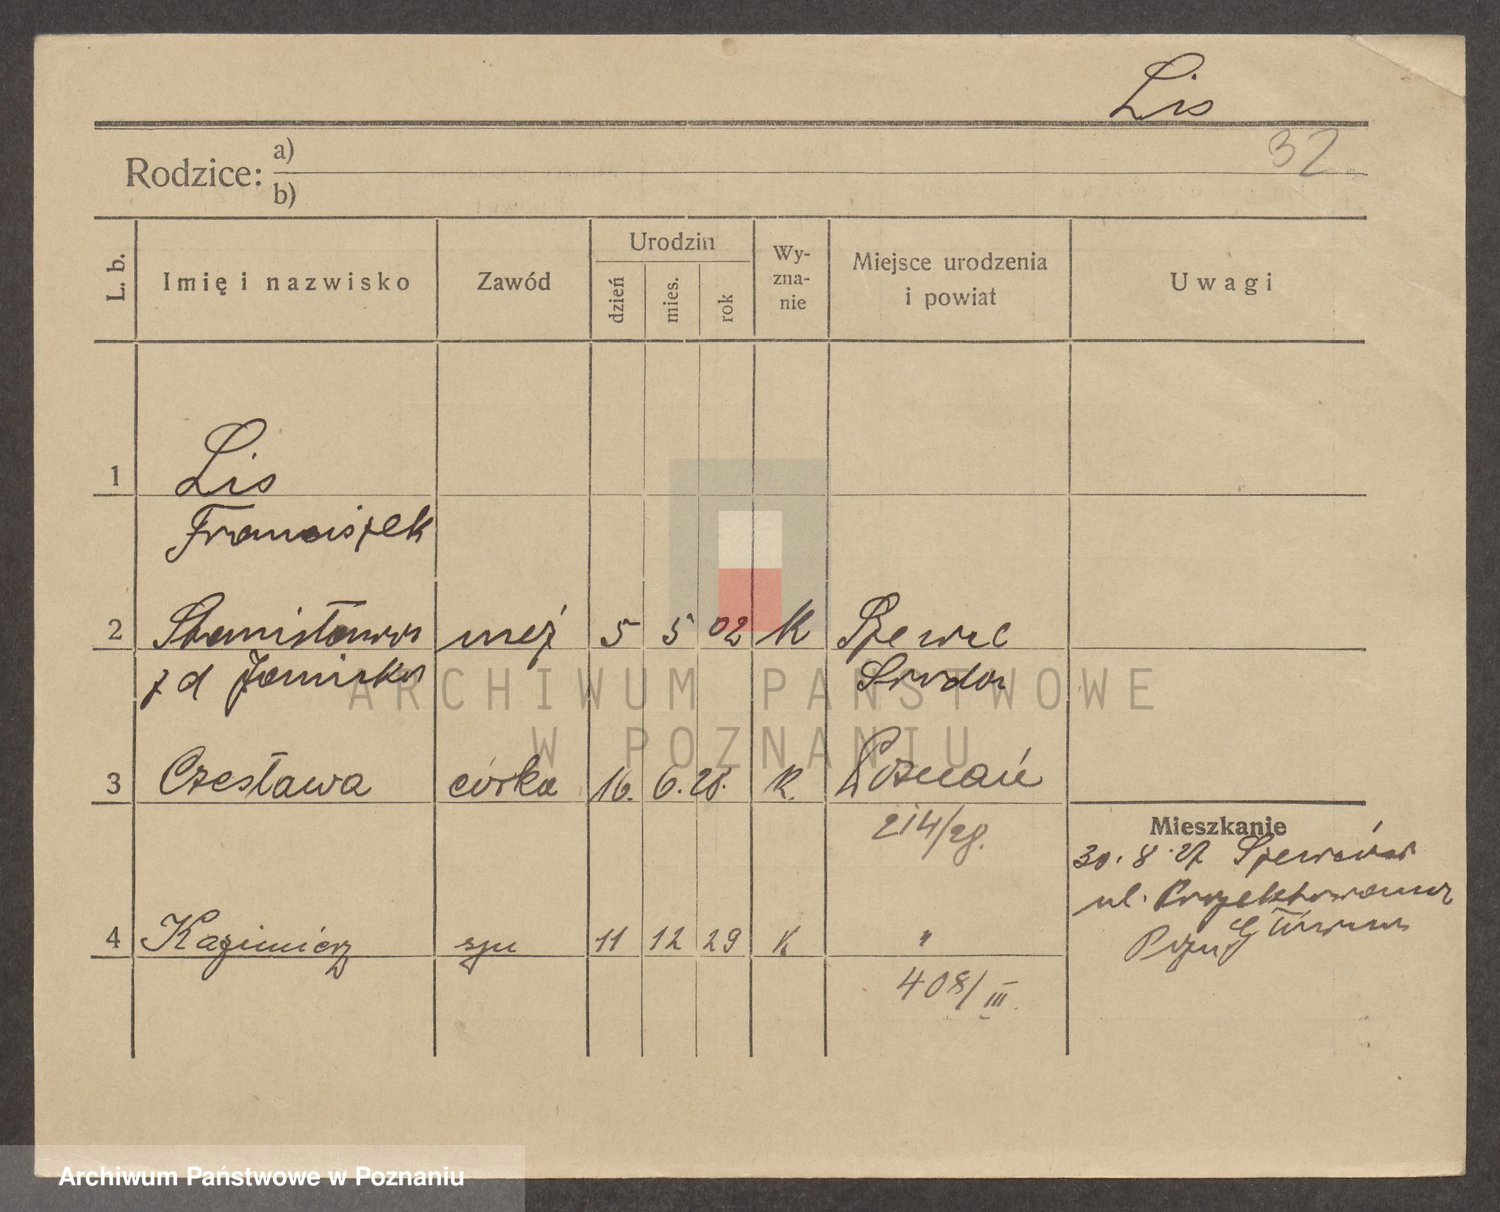 Lis
32
Rodzice: a)
b)
L. b.
Imię i nazwisko
Zawód
Urodzin
dzień
mies.
rok
Wy-
zna-
nie
Miejsce urodzenia
i powiat
Uwagi
1 Lis
Franciszek
2 Stanisława męż 5 5 02 K
z d Janicka Środa
3 Czesława córka 16. 6. 28. K. Poznań
214/28.
4 Kazimierz syn 11 12 29 K "
408/III.
Mieszkanie
30. 8. 27
ul. Projektowana
ARCHIWUM PAŃSTWOWE
W POZNANIU
Archiwum Państwowe w Poznaniu